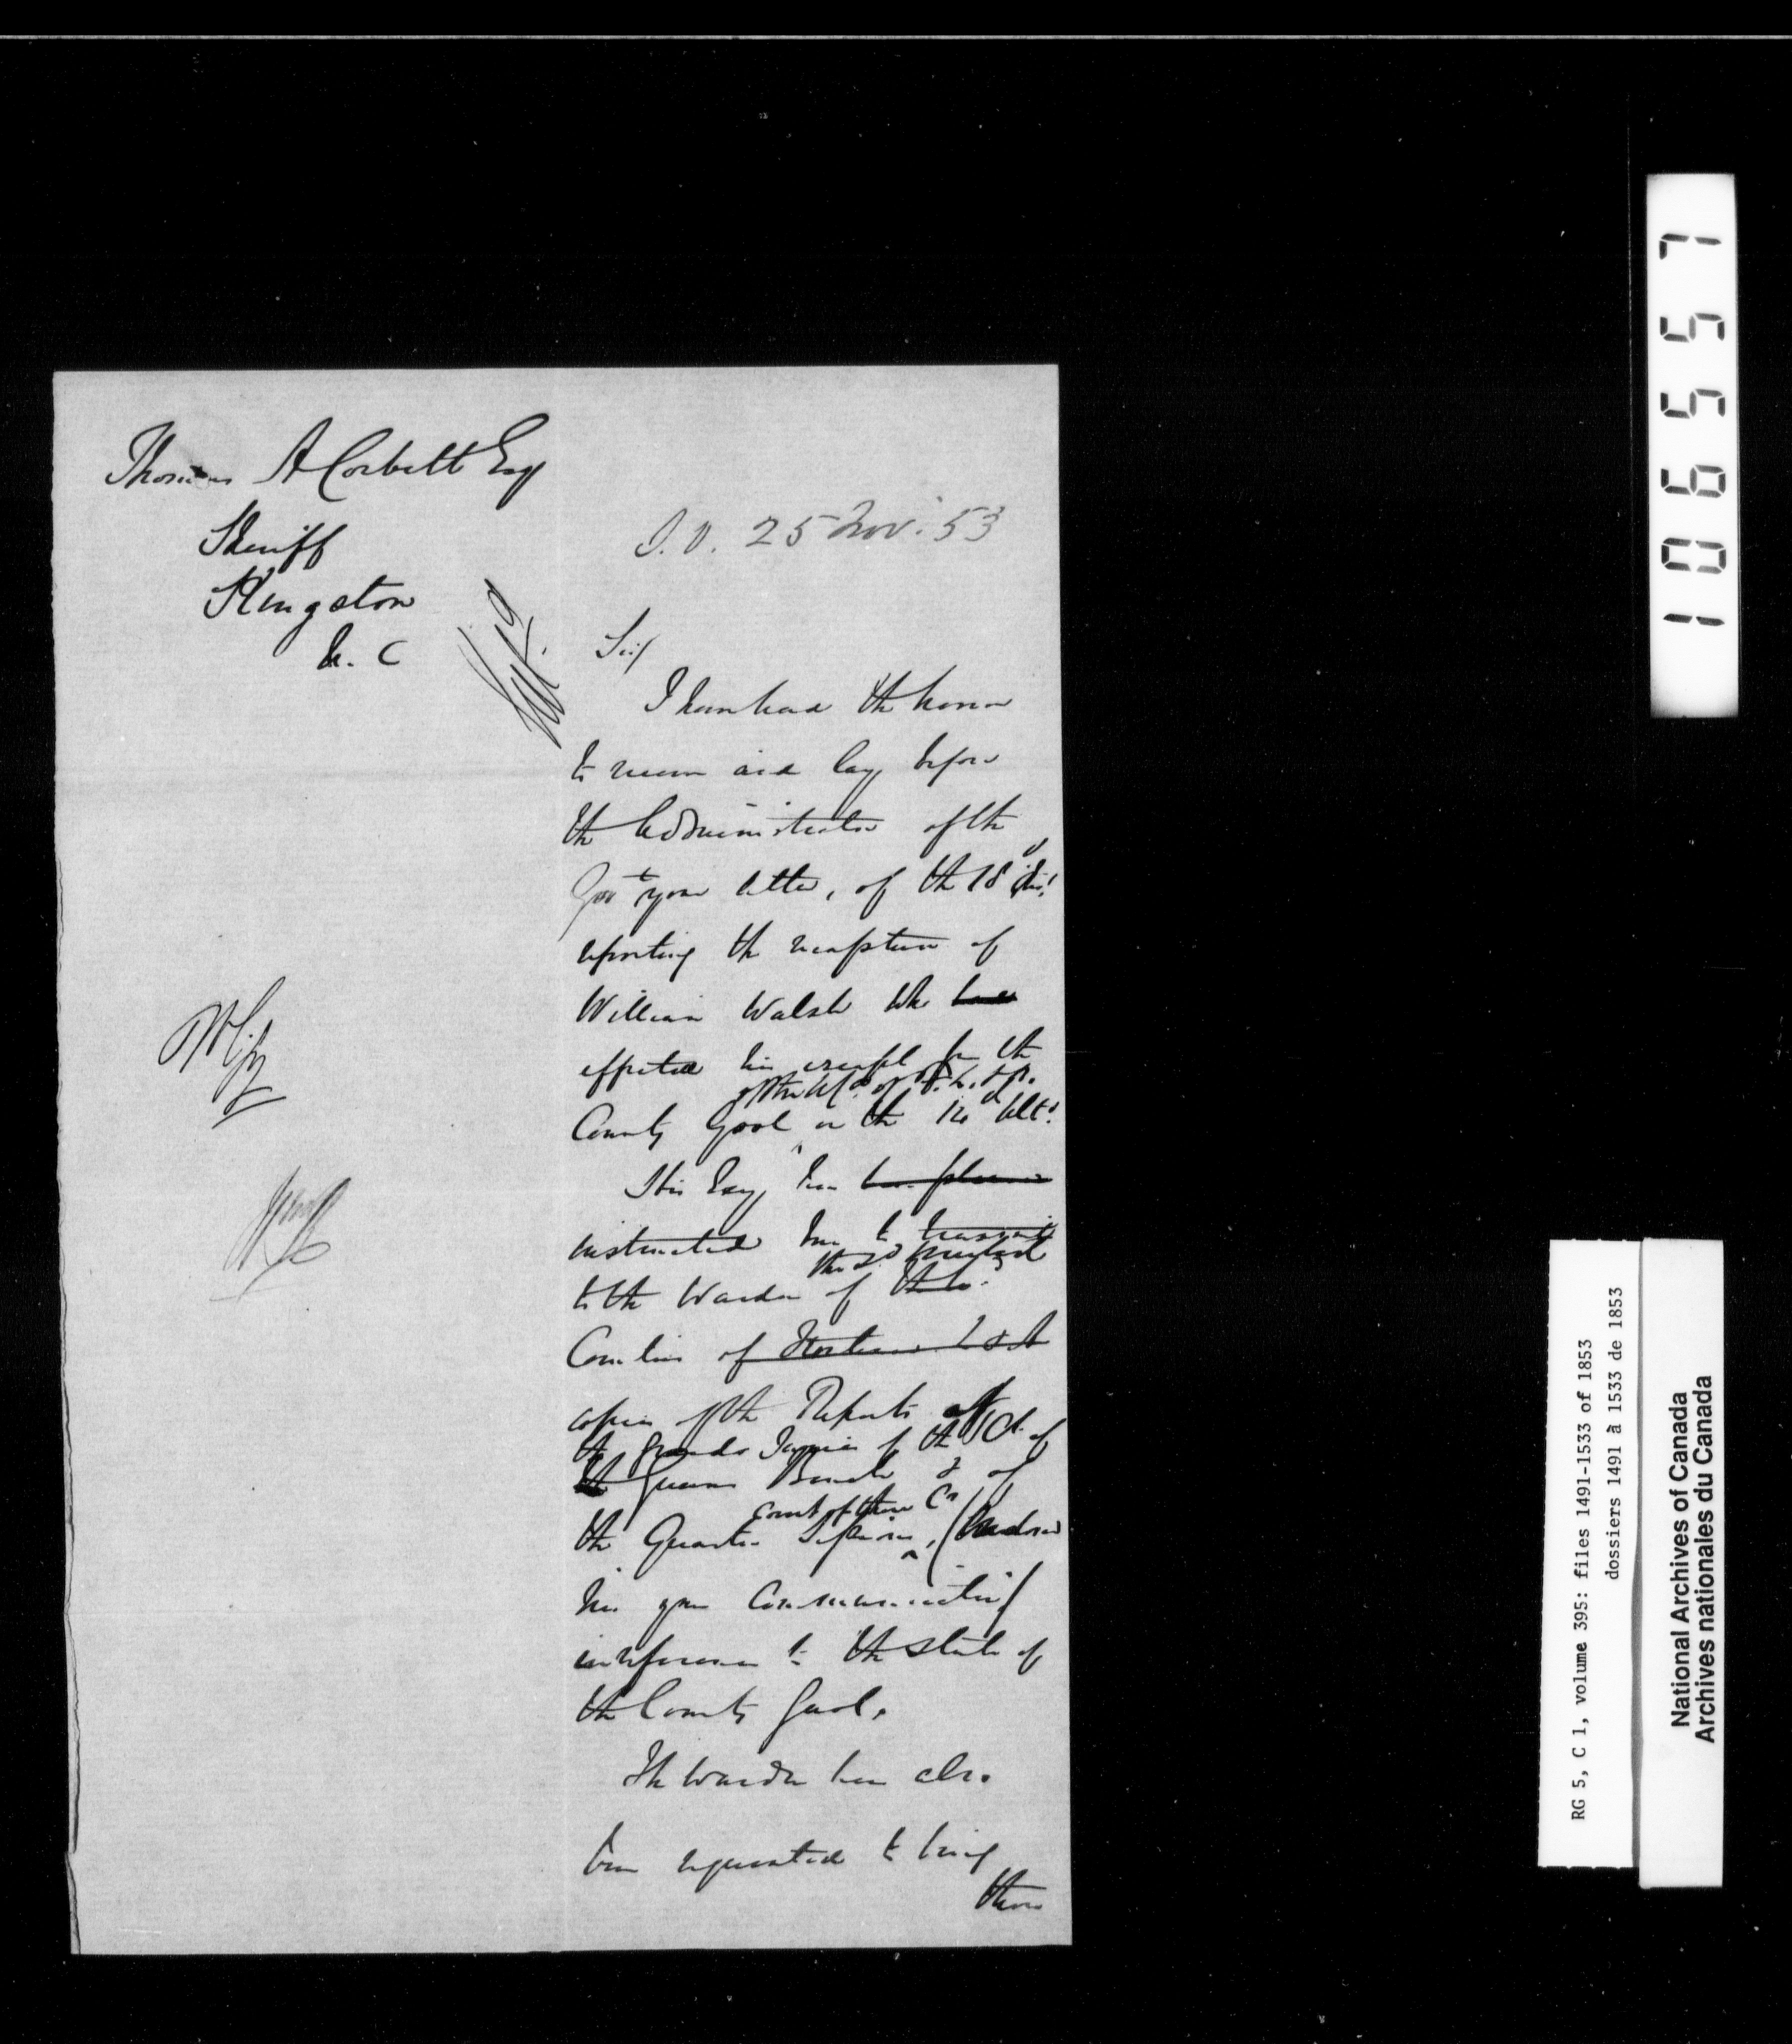 Thomas A Corbett Esq
Sheriff
Kingston
U. C
S.O. 25 Nov. 53
Sir/
I have had the honor
to receive and lay before
the Administrator of the
Govt your letter, of the 18th inst
reporting the recapture of
William Walsh who
effected his escape from the
County Gaol on the Ulto
His Exy has
instructed me to transmit
the United
to the Warden of
Counties of
copies of the Reports of
the Grand Juries of the Ct. of
Queens Bench & of
Court of those Cos
the Quarter Sessions, (Enclosed
in your Communication)
in reference to the state of
the County Gaol.
The Warden has also
been requested to bring
them
106557
RG 5, C 1, volume 395: files 1491-1533 of 1853
dossiers 1491 à 1533 de 1853
National Archives of Canada
Archives nationales du Canada